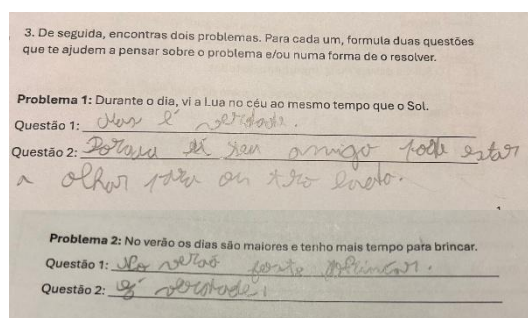 3. De seguida, encontras dois problemas. Para cada um, formula duas questões
que te ajudem a pensar sobre o problema e/ou numa forma de o resolver.
Problema 1: Durante o dia, vi a Lua no céu ao mesmo tempo que o Sol.
Questão 1: é verdade.
Questão 2: seu amigo pode estar
a olhar para
Problema 2: No verão os dias são maiores e tenho mais tempo para brincar.
Questão 1: No verão
Questão 2: É verdade